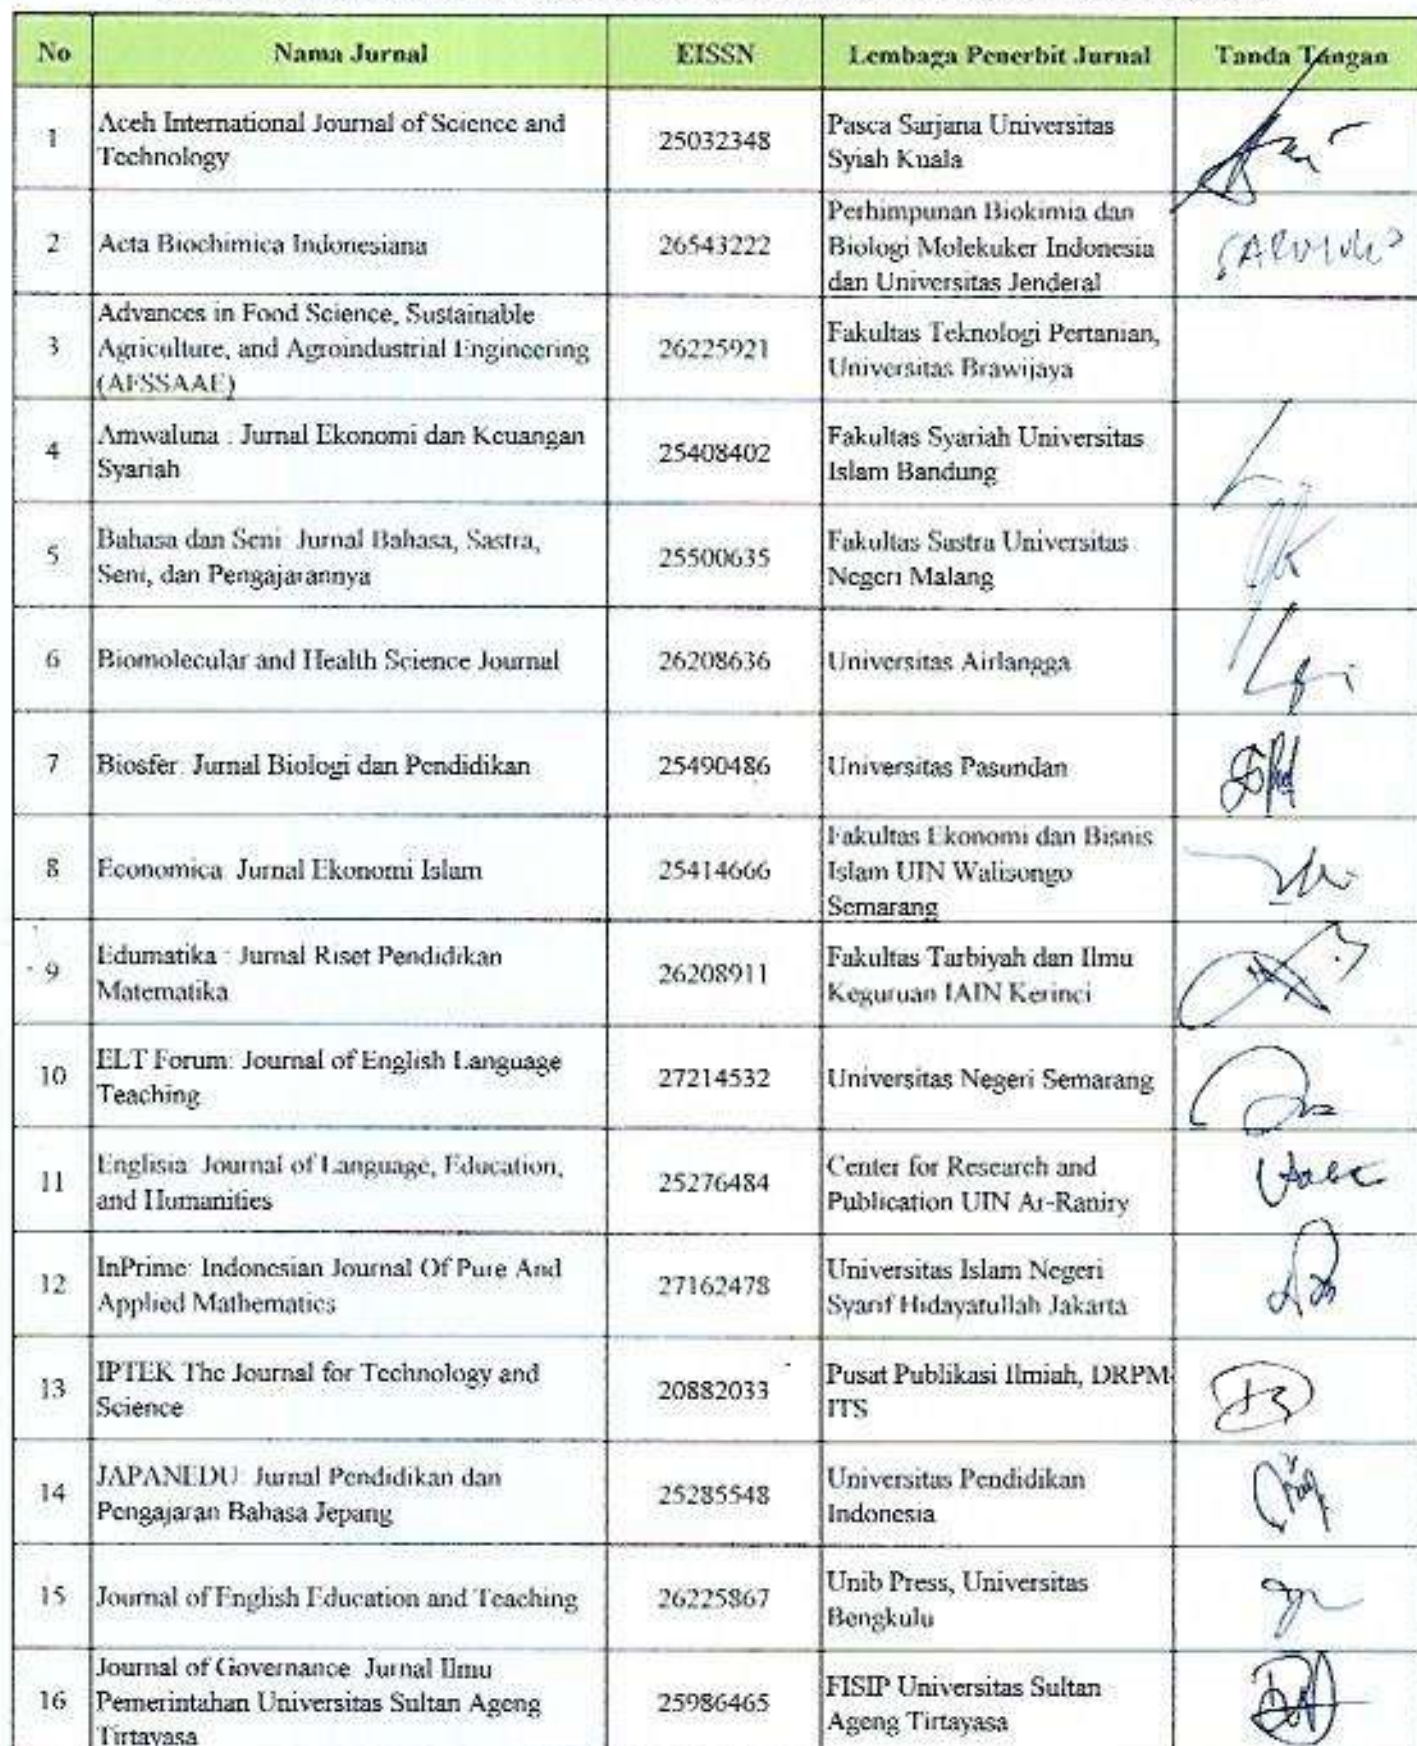 No Nama Jurnal EISSN Lembaga Penerbit Jurnal Tanda Tangan
1 Aceh International Journal of Science and
Technology 25032348 Pasca Sarjana Universitas
Syiah Kuala
2 Acta Biochimica Indonesiana 26543222 Perhimpunan Biokimia dan
Biologi Molekuker Indonesia
dan Universitas Jenderal
3 Advances in Food Science, Sustainable
Agriculture, and Agroindustrial Engineering
(AFSSAAE) 26225921 Fakultas Teknologi Pertanian,
Universitas Brawijaya
4 Amwaluna : Jurnal Ekonomi dan Keuangan
Syariah 25408402 Fakultas Syariah Universitas
Islam Bandung
5 Bahasa dan Seni: Jurnal Bahasa, Sastra,
Seni, dan Pengajarannya 25500635 Fakultas Sastra Universitas
Negeri Malang
6 Biomolecular and Health Science Journal 26208636 Universitas Airlangga
7 Biosfer: Jurnal Biologi dan Pendidikan 25490486 Universitas Pasundan
8 Economica: Jurnal Ekonomi Islam 25414666 Fakultas Ekonomi dan Bisnis
Islam UIN Walisongo
Semarang
9 Edumatika : Jurnal Riset Pendidikan
Matematika 26208911 Fakultas Tarbiyah dan Ilmu
Keguruan IAIN Kerinci
10 ELT Forum: Journal of English Language
Teaching 27214532 Universitas Negeri Semarang
11 Englisia: Journal of Language, Education,
and Humanities 25276484 Center for Research and
Publication UIN Ar-Raniry
12 InPrime: Indonesian Journal Of Pure And
Applied Mathematics 27162478 Universitas Islam Negeri
Syarif Hidayatullah Jakarta
13 IPTEK The Journal for Technology and
Science 20882033 Pusat Publikasi Ilmiah, DRPM-
ITS
14 JAPANEDU: Jurnal Pendidikan dan
Pengajaran Bahasa Jepang 25285548 Universitas Pendidikan
Indonesia
15 Journal of English Education and Teaching 26225867 Unib Press, Universitas
Bengkulu
16 Journal of Governance: Jurnal Ilmu
Pemerintahan Universitas Sultan Ageng
Tirtayasa 25986465 FISIP Universitas Sultan
Ageng Tirtayasa